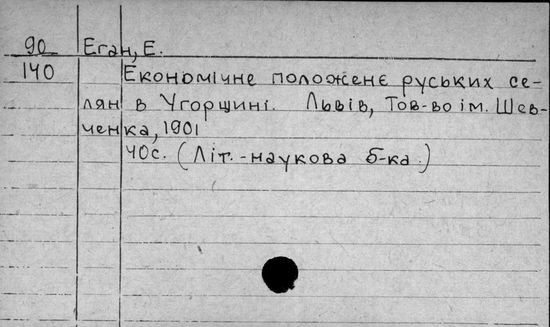 90 Еган, Е.
140 Економічне положенє руських се-
лян в Угорщині. Львів, Тов-во ім. Шев-
ченка, 1901
40с. (Літ.-наукова б-ка.)